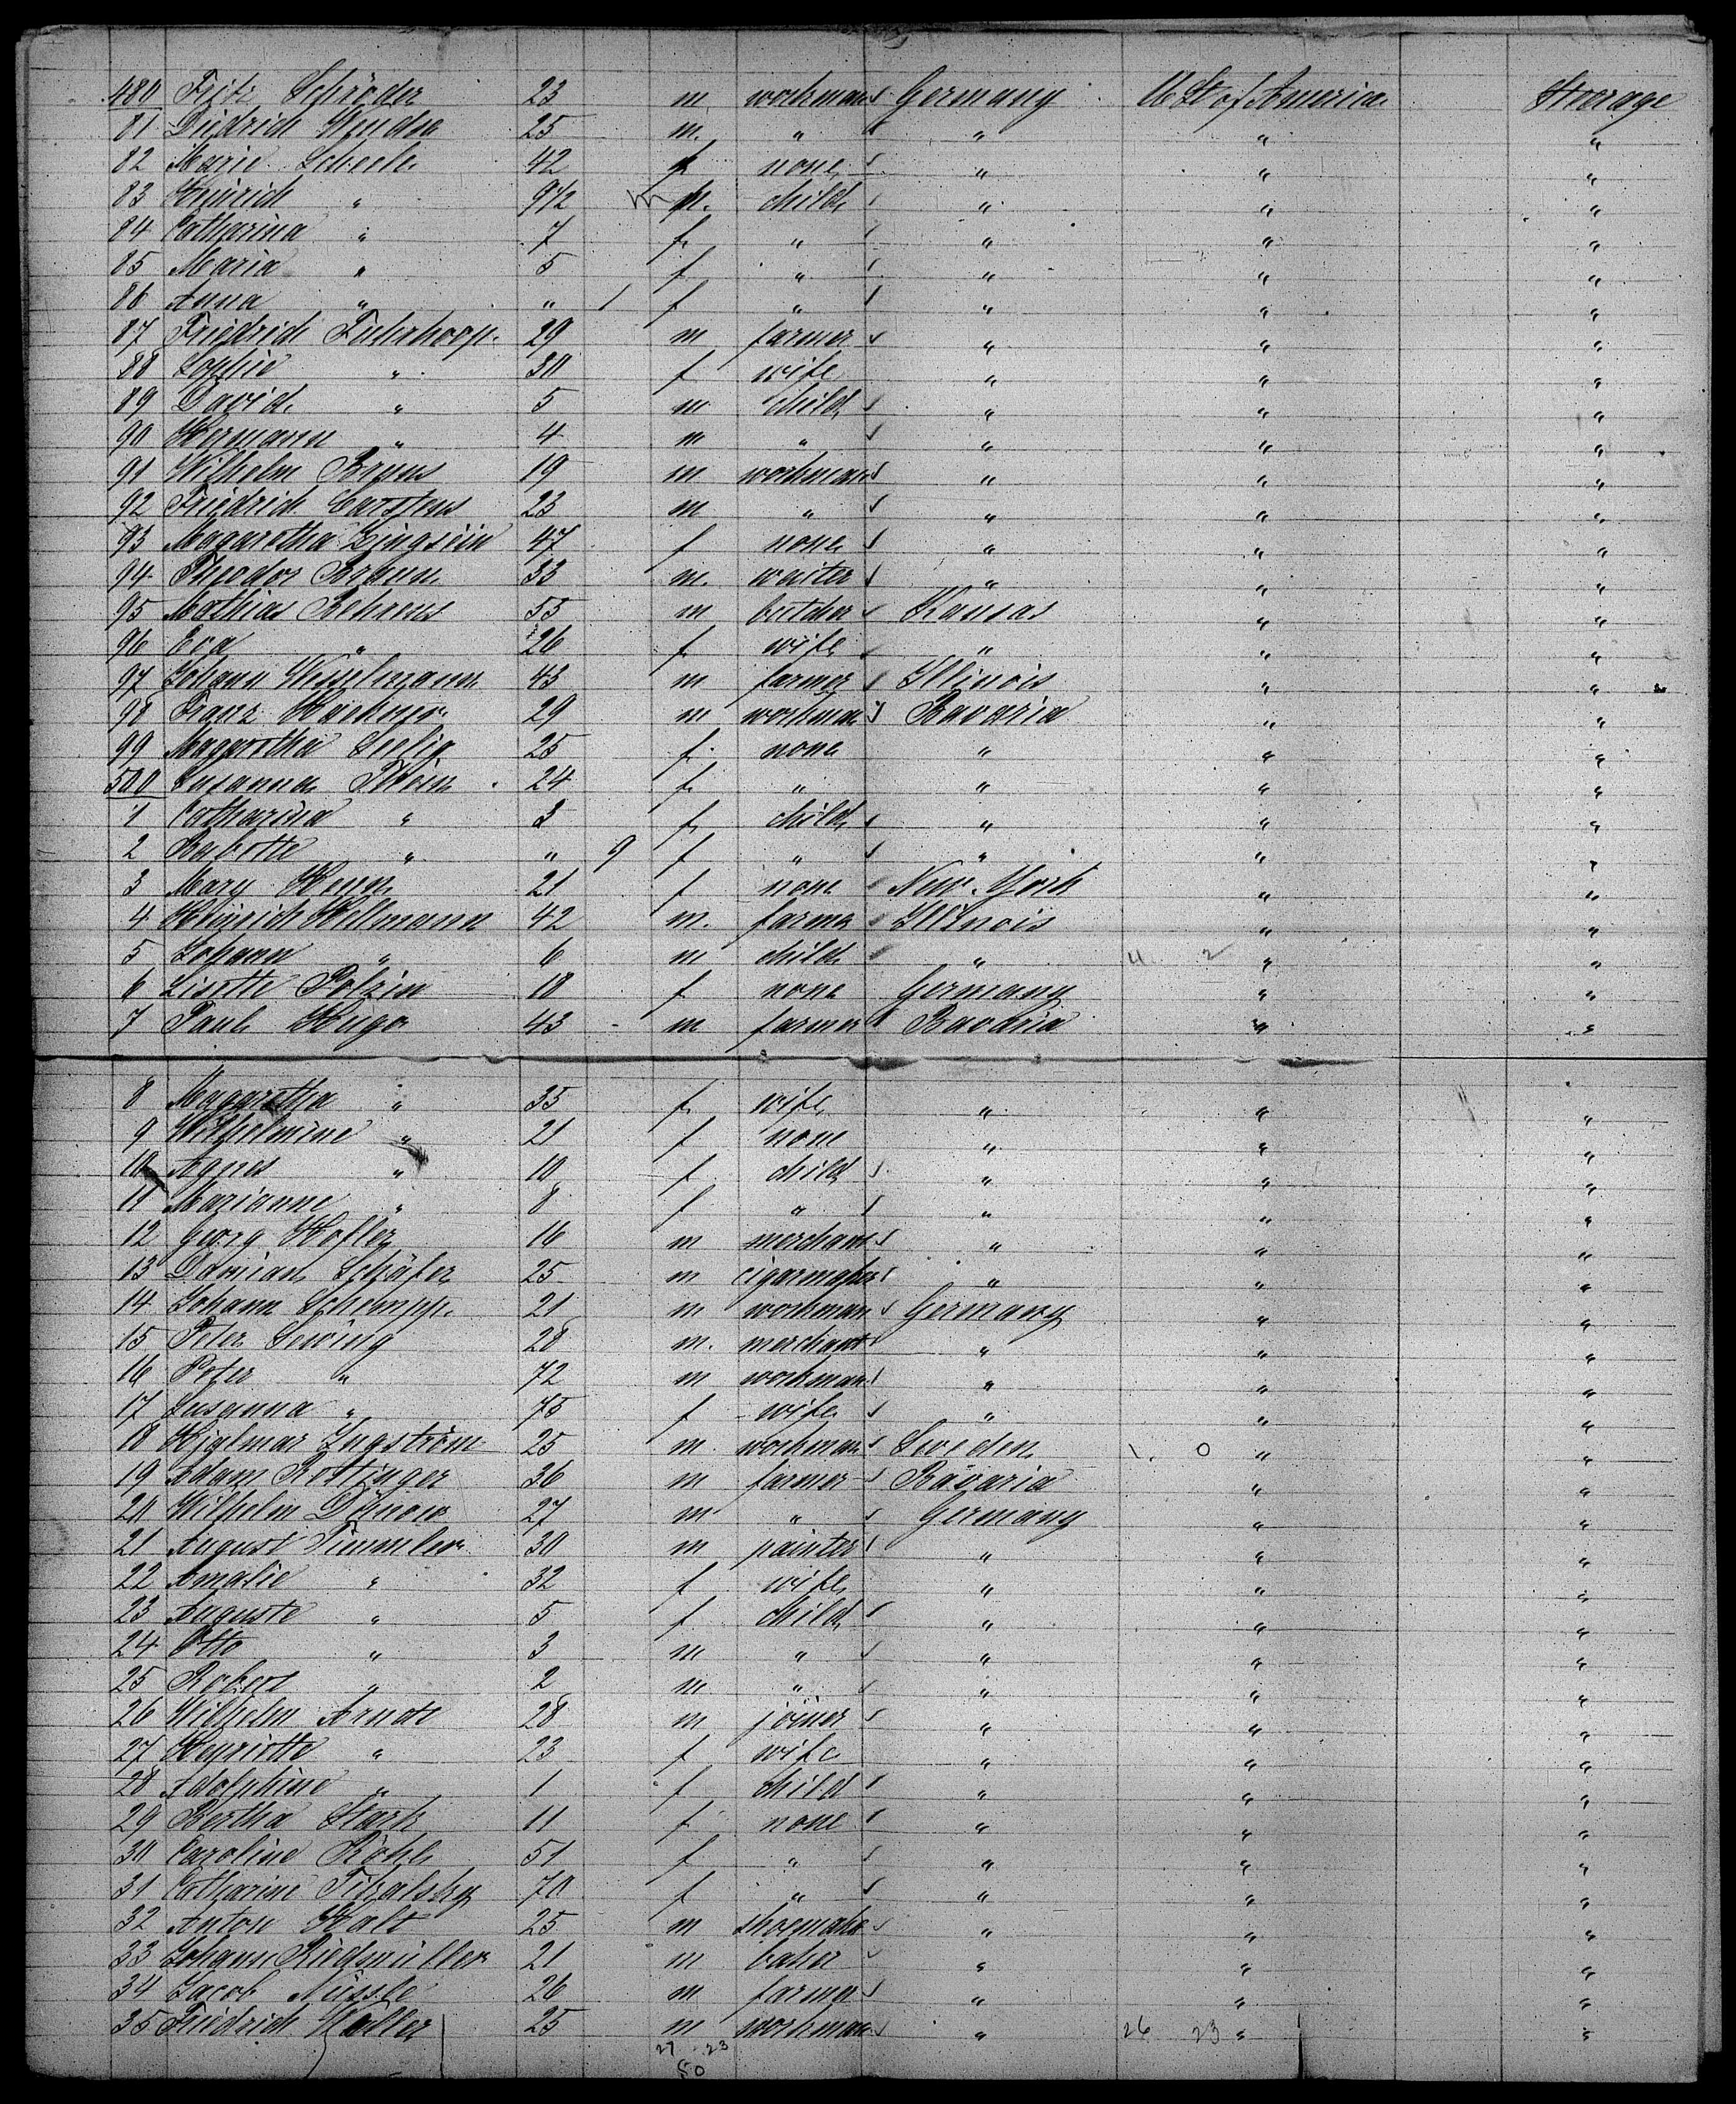 480 Fritz Schröder 23 m workman Germany U St of America Steerage
81 Diedrich 25 m. " " " "
82 Marie Scheele 42 f none " " "
83 Heinrich " 9 1/2 m child " " "
84 Catharina " 7 f. " " " "
85 Maria " 5 f " " " "
86 Anna " " 1 f " " " "
87 Friedrich Fuhrhoop. 29 m farmer " " "
88 Sophie " 30 f wife " " "
89 David " 5 m child " " "
90 Hermann " 4 m " " " "
91 Wilhelm Bruns 19 m workman " " "
92 Friedrich Carstens 23 m " " " "
93 Magaretha 47 f none " " "
94 Theodor 33 m. waiter " " "
95 Mathias Behrens 55 m butcher Kansas " "
96 Eva " 26 f. wife " " "
97 Johann Wesselmann 43 m farmer Illinois " "
98 Franz 29 m workman Bavaria " "
99 Magaretha Seelig 25 f. none " " "
500 Susanna Thein 24 f. " " " "
1 Catharina " 3 f. child " " "
2 Babette " " 9 f " " " "
3 Mary 21 f none New York " "
4 Heinrich Hellmann 42 m. farmer Illinois " "
5 Johann " 6 m child " 4 2 " "
6 Lisette Polzin 18 f none Germany " "
7 Paul Hugo 43 m farmer Bavaria " "
8 Magaretha " 35 f. wife " " "
9 Wilhelmine " 21 f none " " "
10 Agnes " 10 f child " " "
11 Marianne " 8 f " " " "
12 Georg Hofler 16 m merchant " " "
13 Damian Schäfer 25 m cigarmaker " " "
14 Johann Schempp. 21 m workman Germany " "
15 Peter Sewing 28 m. merchant " " "
16 Peter " 72 m workman " " "
17 Susanna " 75 f wife " " "
18 Hjalmar Ingström 25 m. workman Sweden 1. 0 " "
19 Adam Rottinger 36 m farmer Bavaria " "
20 Wilhelm Dönow 27 m " Germany " "
21 August Timmler 30 m painter " " "
22 Amalie " 32 f wife " " "
23 Auguste " 5 f child " " "
24 Otto " 3 m " " " "
25 Robert " 2 m. " " " "
26 Wilhelm Arndt 28 m joiner " " "
27 Henriette " 23 f wife " " "
28 Adolphine " 1 f child " " "
29 Bertha Stark 11 f none " " "
30 Caroline Röhl 51 f " " " "
31 Catharine 70 f " " " "
32 Anton Halt 25 m shoemaker " " "
33 Johann Riedmüller 21 m baker " " "
34 Jacob Nüssle 26 m farmer " " "
35 Friedrich Müller 25 m workman " 26 23 " "
27 23
50